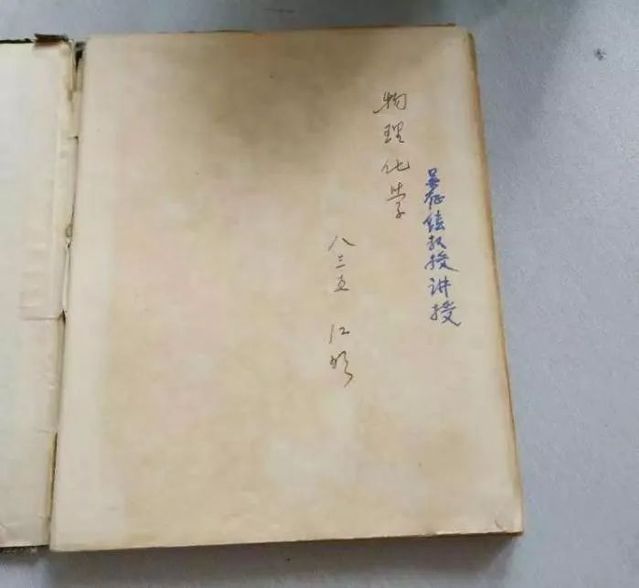 吴征铠教授讲授
物理化学
八三五 江明